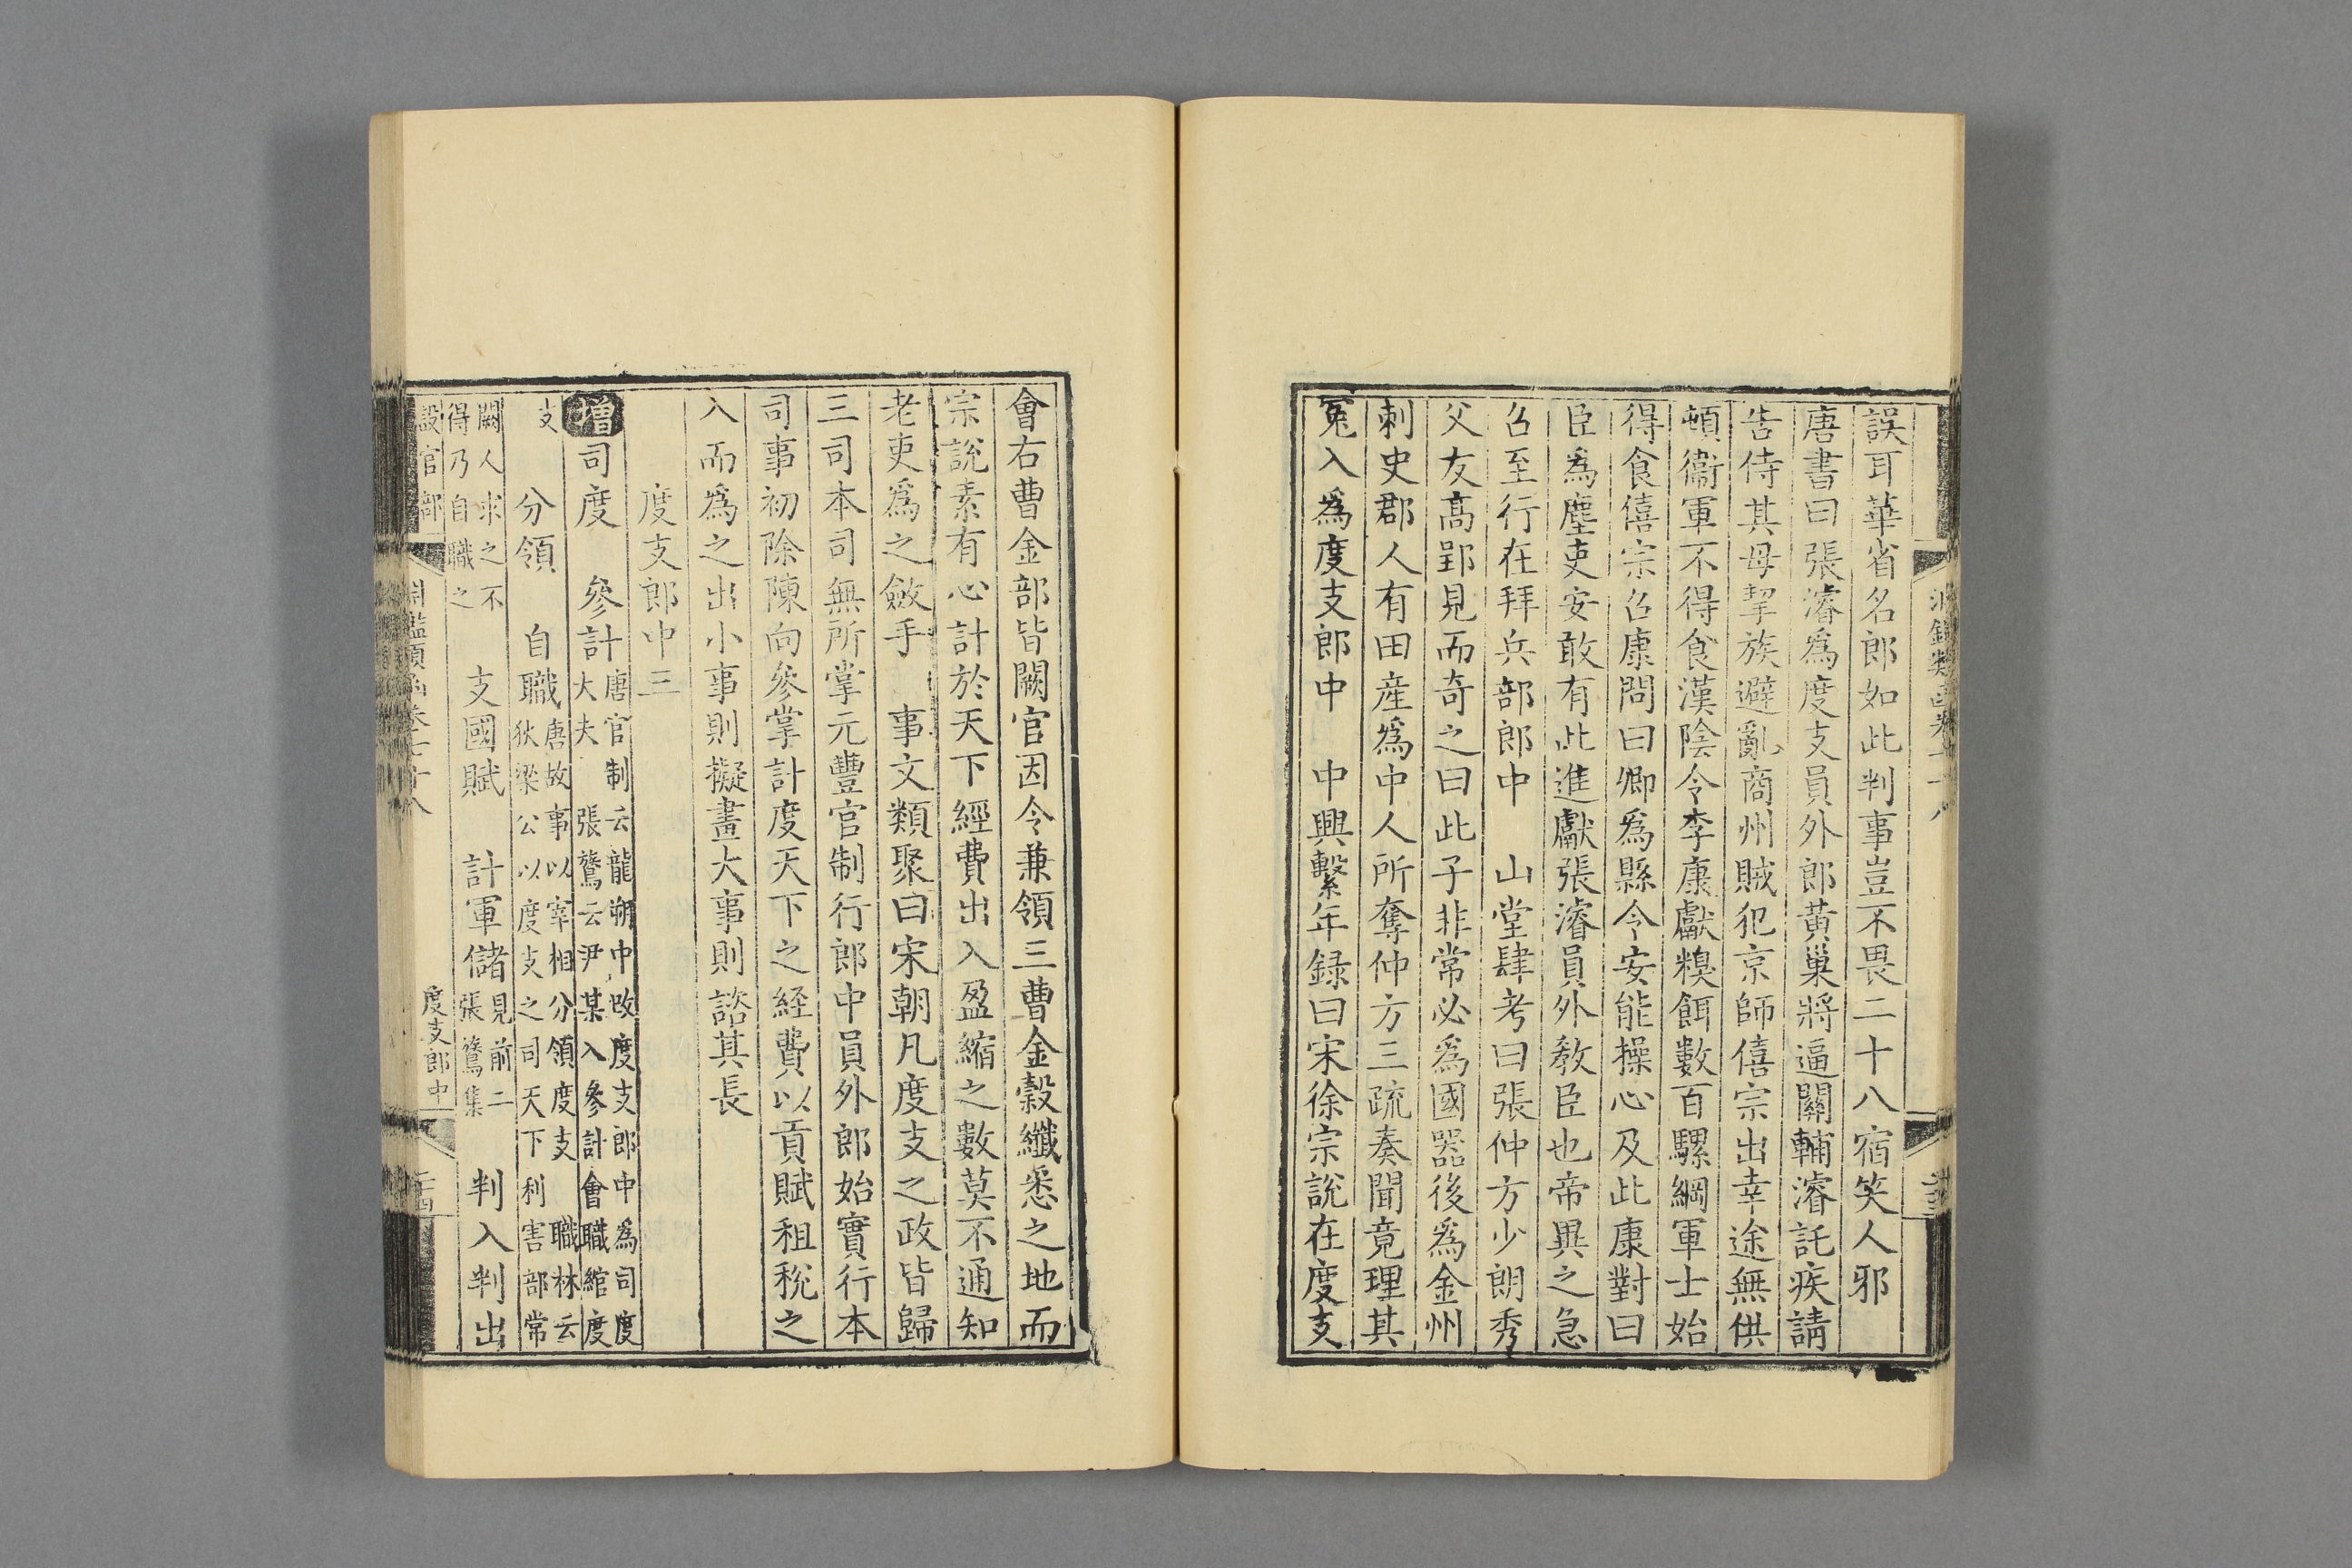 誤耳華省名郎如此判事豈不畏二十八宿笑人邪
唐書曰張濬爲度支員外郎黃巢將逼關輔濬託疾請
告侍其母挈族避亂商州賊犯京師僖宗出幸途無供
頓衞軍不得食漢陰令李康獻糗餌數百騾綱軍士始
得食僖宗召康問曰卿爲縣令安能操心及此康對曰
臣爲塵吏安敢有此進獻張濬員外敎臣也帝異之急
召至行在拜兵部郎中 山堂肆考曰張仲方少朗秀
父友高郢見而奇之曰此子非常必爲國器後爲金州
刺史郡人有田産爲中人所奪仲方三疏奏聞竟理其
冤入爲度支郎中 中興繫年録曰宋徐宗說在度支
會右曹金部皆闕官因令兼領三曹金穀纖悉之地而
宗說素有心計於天下經費出入盈縮之數莫不通知
老吏爲之斂手 事文類聚曰宋朝凡度支之政皆歸
三司本司無所掌元豐官制行郎中員外郎始實行本
司事初除陳向叅掌計度天下之経費以貢賦租稅之
入而爲之出小事則擬畫大事則諮其長
度支郎中三
增司度 叅計唐官制云龍朔中改度支郎中爲司度
大夫 張鷟云尹某入叅計會職綰度
支 分領 自職唐故事以宰相分領度支 職林云
狄梁公以度支之司天下利害部常
闕人求之不
得乃自職之 支國賦 計軍儲見前二
張鷟集 判入判出
設官部
度支郎中